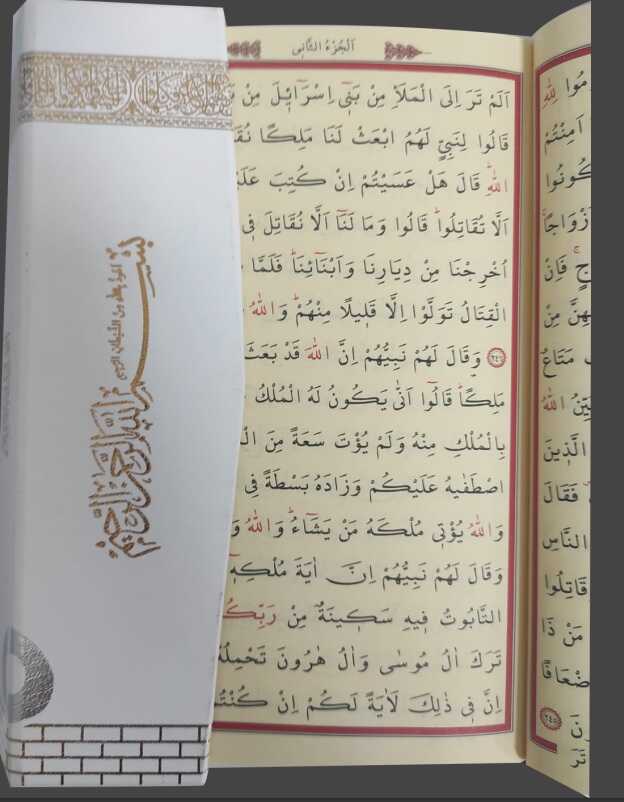 اَلْجُزْءُ الثَّانِى
اَلَمْ تَرَ اِلَى الْمَلَأِ مِنْ بَنٖٓى اِسْرَٓائٖلَ مِنْ
قَالُوا لِنَبِىٍّ لَهُمُ ابْعَثْ لَنَا مَلِكًا
اللّٰهِ قَالَ هَلْ عَسَيْتُمْ اِنْ كُتِبَ
اَلَّا تُقَاتِلُوا قَالُوا وَمَا لَنَٓا اَلَّا نُقَاتِلَ فٖى
اُخْرِجْنَا مِنْ دِيَارِنَا وَاَبْنَٓائِنَا فَلَمَّا
الْقِتَالُ تَوَلَّوْا اِلَّا قَلٖيلًا مِنْهُمْ وَاللّٰهُ
﴿٢٤٦﴾ وَقَالَ لَهُمْ نَبِيُّهُمْ اِنَّ اللّٰهَ قَدْ بَعَثَ
مَلِكًا قَالُٓوا اَنّٰى يَكُونُ لَهُ الْمُلْكُ
بِالْمُلْكِ مِنْهُ وَلَمْ يُؤْتَ سَعَةً مِنَ
اصْطَفٰيهُ عَلَيْكُمْ وَزَادَهُ بَسْطَةً فِى
وَاللّٰهُ يُؤْتٖى مُلْكَهُ مَنْ يَشَٓاءُ وَاللّٰهُ
وَقَالَ لَهُمْ نَبِيُّهُمْ اِنَّ اٰيَةَ مُلْكِهٖٓ
التَّابُوتُ فٖيهِ سَكٖينَةٌ مِنْ
تَرَكَ اٰلُ مُوسٰى وَاٰلُ هٰرُونَ تَحْمِلُهُ
اِنَّ فٖى ذٰلِكَ لَاٰيَةً لَكُمْ اِنْ كُنْتُمْ
لِلّٰهِ
اَمِنْتُمْ
اَزْوَاجًا
فَاِنْ
مِنْ
مَتَاعٌ
اللّٰهُ
الَّذٖينَ
فَقَالَ
النَّاسِ
قَاتِلُوا
مَنْ ذَا
﴿٢٤٥﴾
تَرَ
اعوذ بالله من الشيطان الرجيم
بسم الله الرحمن الرحيم